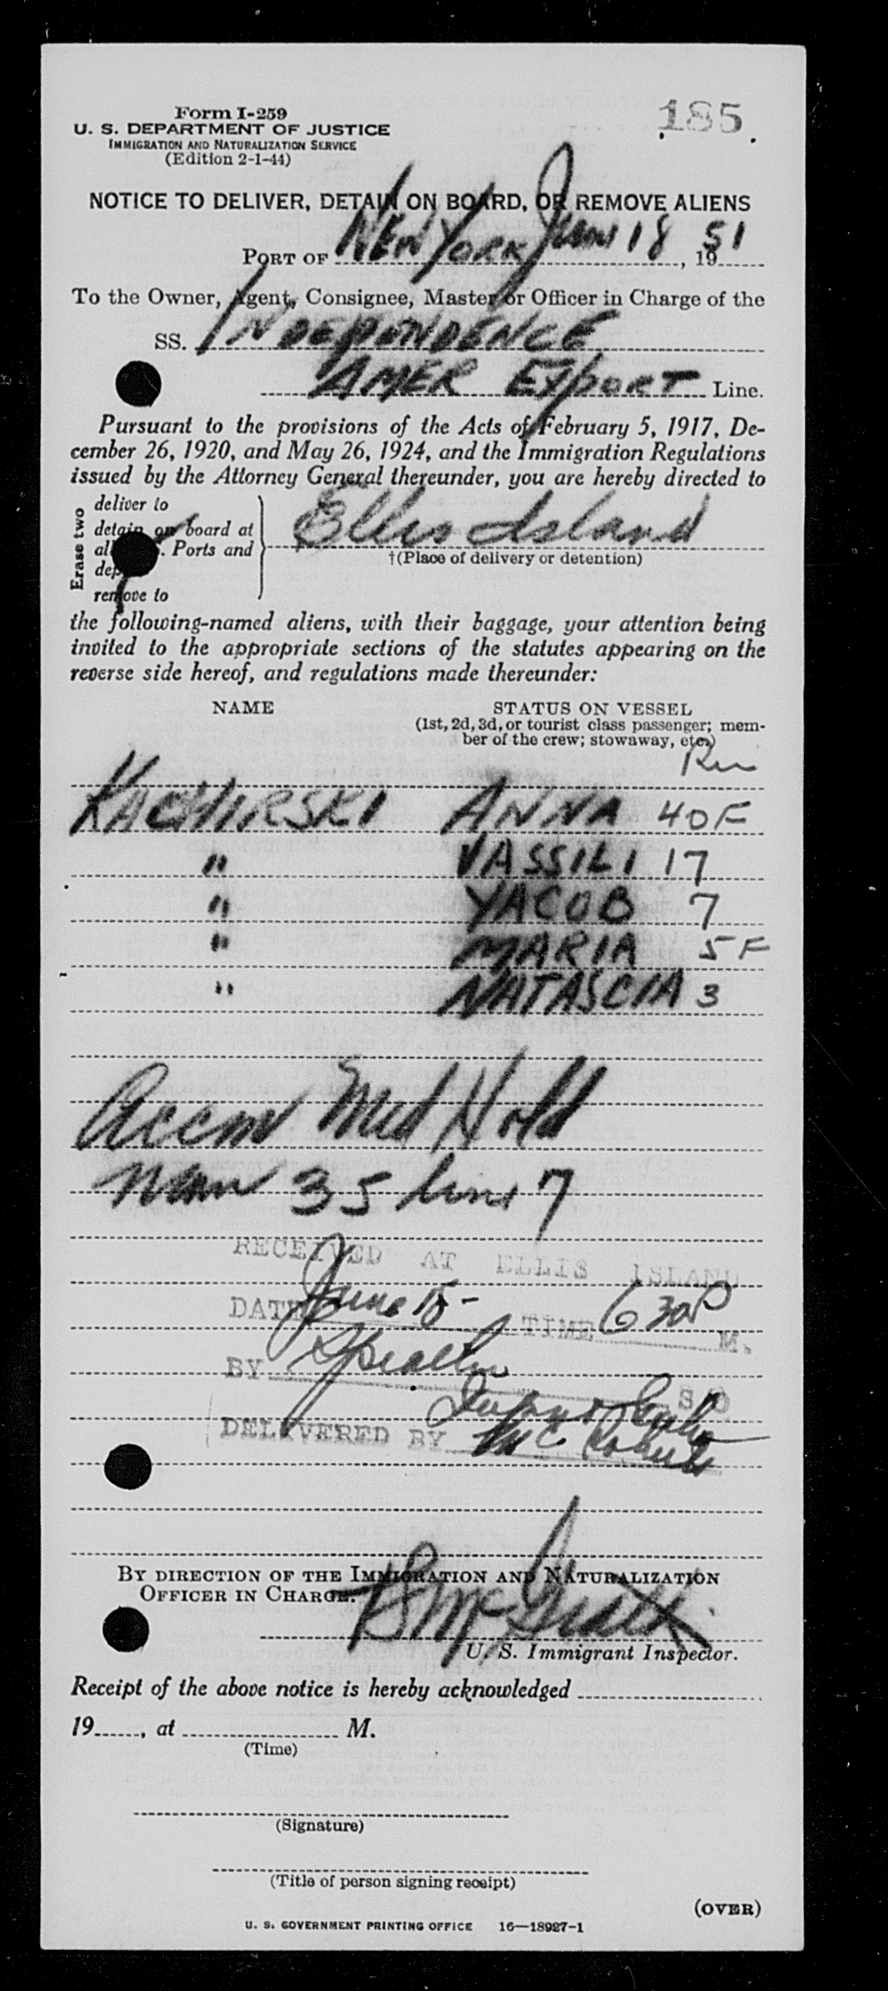 Form I-259
185
U. S. DEPARTMENT OF JUSTICE
IMMIGRATION AND NATURALIZATION SERVICE
(Edition 2-1-44)
NOTICE TO DELIVER, DETAIN ON BOARD, OR REMOVE ALIENS
PORT OF NEW YORK June 18, 1951
To the Owner, Agent, Consignee, Master or Officer in Charge of the
SS. INDEPENDENCE
AMER EXPORT Line.
Pursuant to the provisions of the Acts of February 5, 1917, De-
cember 26, 1920, and May 26, 1924, and the Immigration Regulations
issued by the Attorney General thereunder, you are hereby directed to
Erase two
deliver to
detain on board at
Ports and
remove to
Ellis Island
†(Place of delivery or detention)
the following-named aliens, with their baggage, your attention being
invited to the appropriate sections of the statutes appearing on the
reverse side hereof, and regulations made thereunder:
NAME STATUS ON VESSEL
(1st, 2d, 3d, or tourist class passenger; mem-
ber of the crew; stowaway, etc.)
KACHIRSKI ANNA 40 F
" VASSILI 17
" YACOB 7
" MARIA 5 F
" NATASCIA 3
Accm Med Hold
Man 35 line 7
RECEIVED AT ELLIS ISLAND
DATE June 18- TIME 6 30 P M.
BY
DELIVERED BY
BY DIRECTION OF THE IMMIGRATION AND NATURALIZATION
OFFICER IN CHARGE.
U. S. Immigrant Inspector.
Receipt of the above notice is hereby acknowledged
19, at M.
(Time)
(Signature)
(Title of person signing receipt)
(OVER)
U. S. GOVERNMENT PRINTING OFFICE 16—18927-1